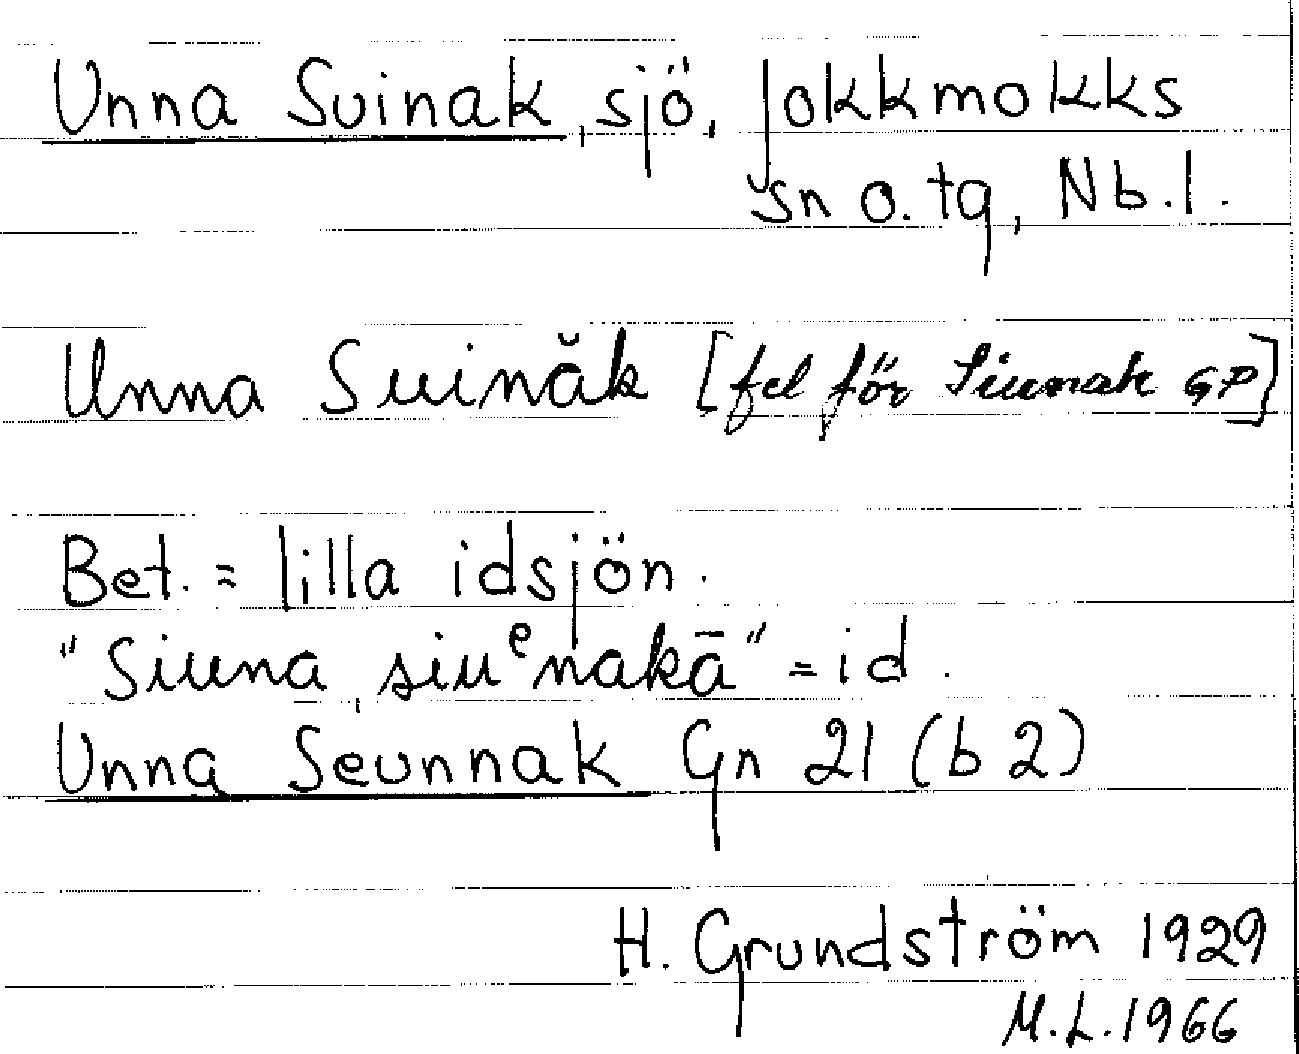 Unna Suinak, sjö, Jokkmokks
sn o. tg, Nb. l.
Unna Suinăk [fel för Siunak GP]
Bet. = lilla idsjön.
"Siuna, siuᵉnakā" = id.
Unna Seunnak Gn 21 (b 2)
H. Grundström 1929
M. L. 1966